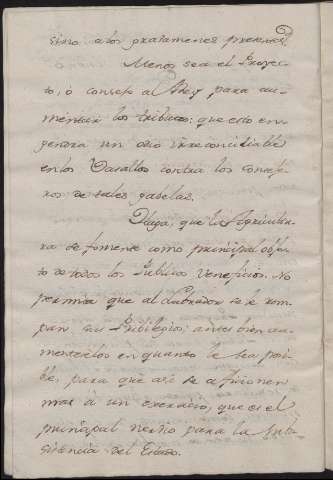 sino a los gravamenes precisos.
Menos sea el Proyec-
to, ò consejo al Rey para au-
mentar los tributos: que esto en-
gendra un odio irreconciliable
en los Vasallos contra los conseje-
ros de tales gabelas.
Haga, que la Agricultu-
ra se fomente como principal obje-
to de todos los Publicos veneficios. No
permita que al Labrador se le rom-
pan sus Pribilegios; antes bien au-
mentarlos en quanto le sea posi-
ble, para que asi se aficionen
mas à un exercicio, que es el
principal nervio para la Sub-
sistencia del Estado.